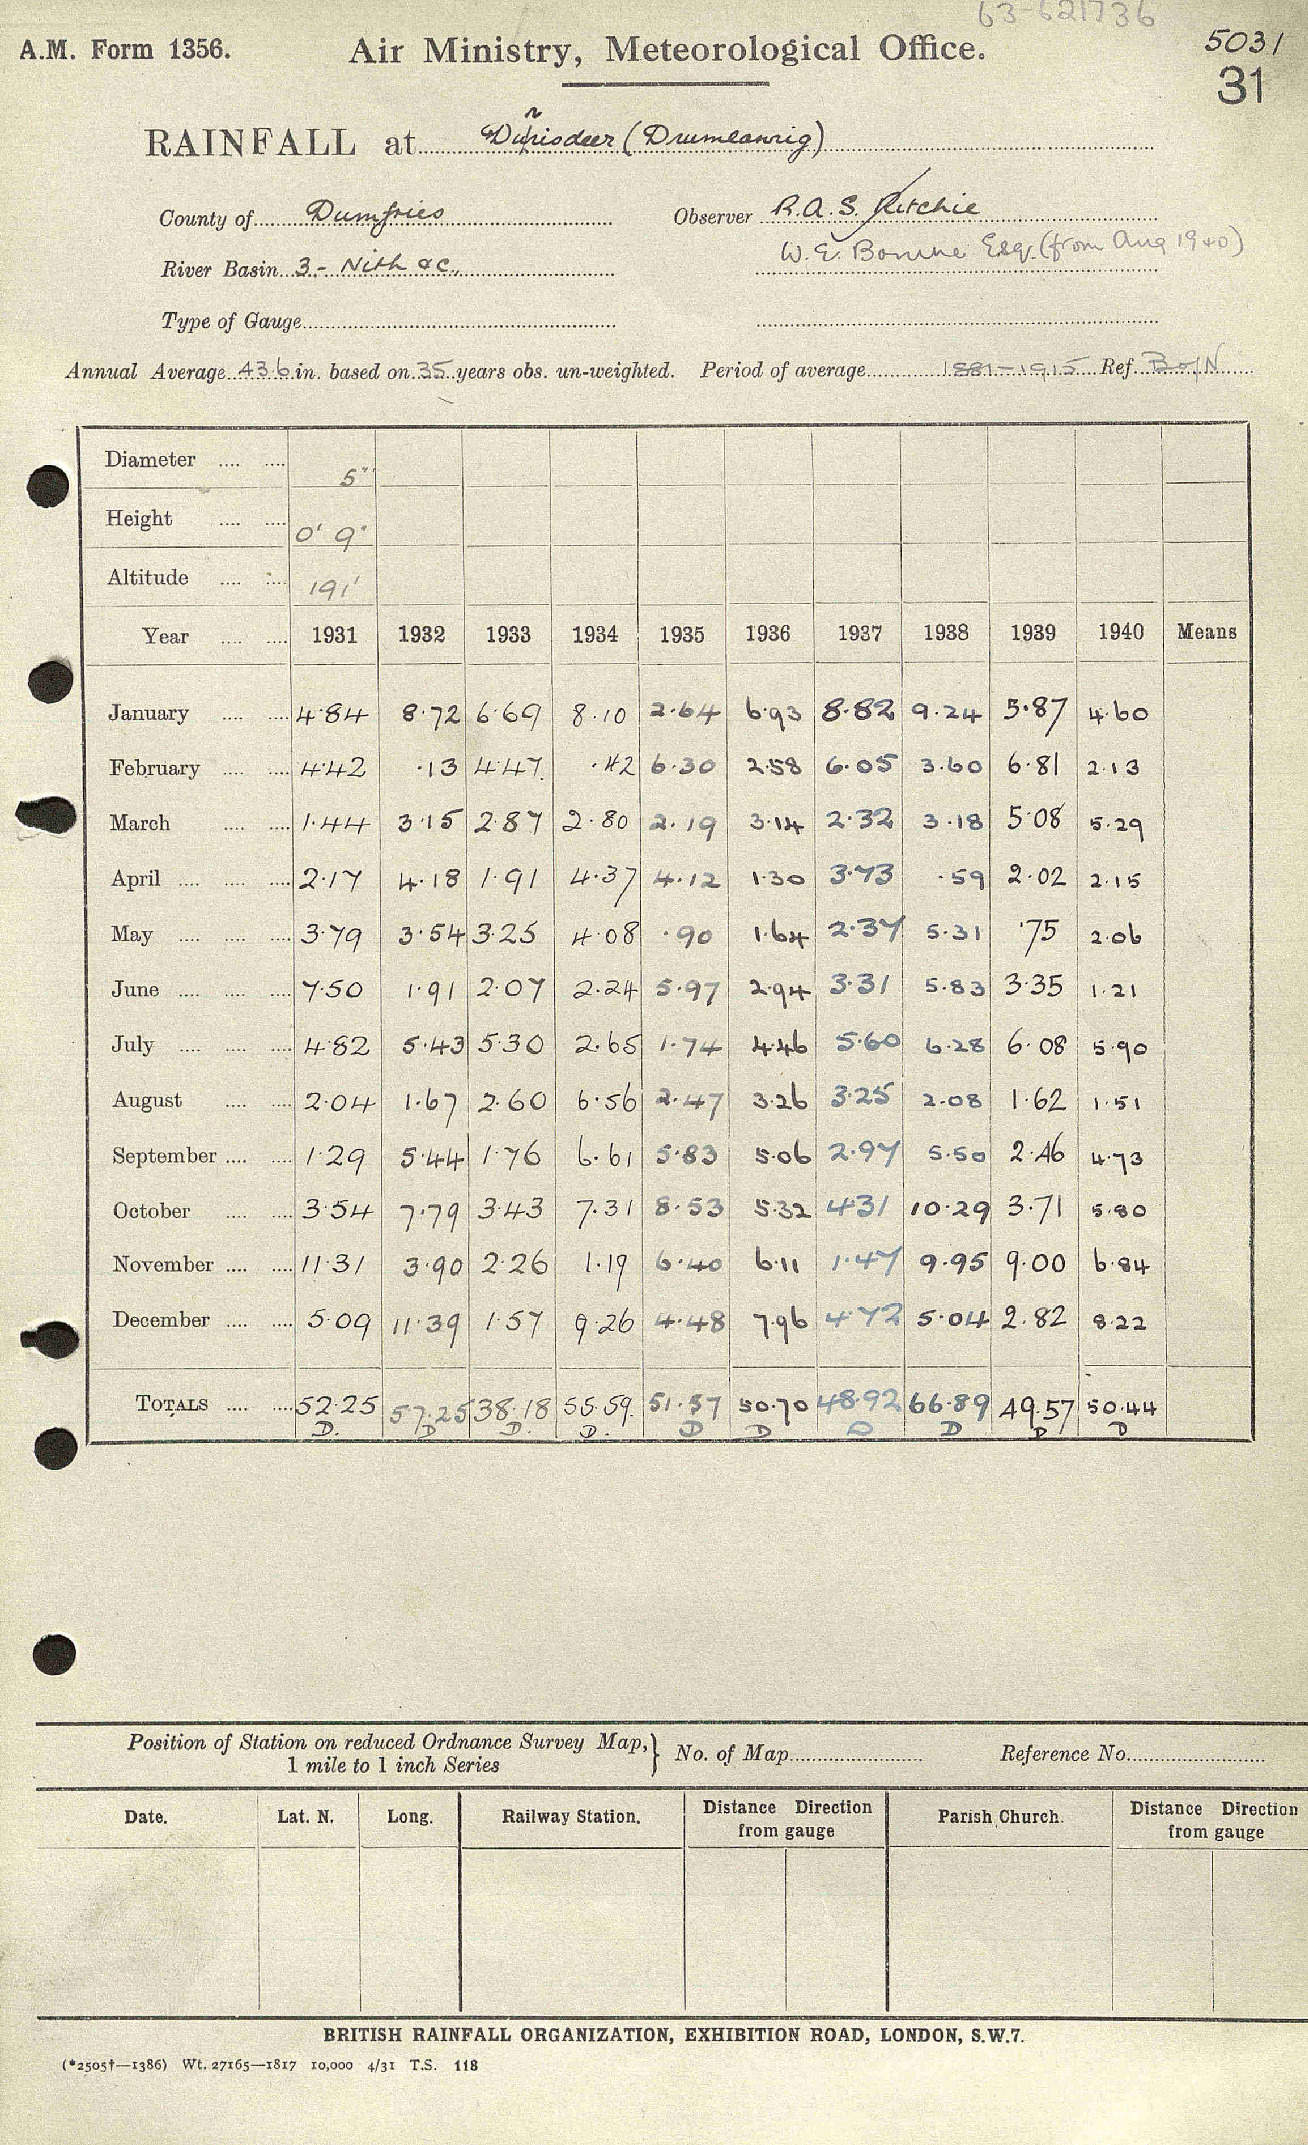 63-621736
A.M. Form 1356. Air Ministry, Meteorological Office. 5031
31
RAINFALL at Durisdeer (Drumlanrig)
County of Dumfries Observer R.A.S. Ritchie
River Basin 3 - Nith &c. W. E. Esq. (from Aug 1940)
Type of Gauge
Annual Average 43.6 in. based on 35 years obs. un-weighted. Period of average 1881-1915 Ref.
Diameter .... .... 5"
Height .... .... 0' 9"
Altitude .... .... 191'
Year .... .... 1931 1932 1933 1934 1935 1936 1937 1938 1939 1940 Means
January .... .... 4.84 8.72 6.69 8.10 2.64 6.93 8.82 9.24 5.87 4.60
February .... .... 4.42 .13 4.47 .42 6.30 2.58 6.05 3.60 6.81 2.13
March .... .... 1.44 3.15 2.87 2.80 2.19 3.14 2.32 3.18 5.08 5.29
April .... .... .... 2.17 4.18 1.91 4.37 4.12 1.30 3.73 .59 2.02 2.15
May .... .... .... 3.79 3.54 3.25 4.08 .90 1.64 2.37 5.31 .75 2.06
June .... .... .... 7.50 1.91 2.07 2.24 5.97 2.94 3.31 5.83 3.35 1.21
July .... .... .... 4.82 5.43 5.30 2.65 1.74 4.46 5.60 6.28 6.08 5.90
August .... .... 2.04 1.67 2.60 6.56 2.47 3.26 3.25 2.08 1.62 1.51
September .... .... 1.29 5.44 1.76 6.61 5.83 5.06 2.97 5.50 2.46 4.73
October .... .... 3.54 7.79 3.43 7.31 8.53 5.32 4.31 10.29 3.71 5.80
November .... .... 11.31 3.90 2.26 1.19 6.40 6.11 1.47 9.95 9.00 6.84
December .... .... 5.09 11.39 1.57 9.26 4.48 7.96 4.72 5.04 2.82 8.22
TOTALS .... .... 52.25 57.25 38.18 55.59 51.57 50.70 48.92 66.89 49.57 50.44
D. D D. D. D D D D D D
Position of Station on reduced Ordnance Survey Map, } No. of Map Reference No.
1 mile to 1 inch Series
Date. Lat. N. Long. Railway Station. Distance Direction from gauge Parish Church. Distance Direction from gauge
BRITISH RAINFALL ORGANIZATION, EXHIBITION ROAD, LONDON, S.W.7.
(*2505†—1386) Wt. 27165—1817 10,000 4/31 T.S. 118